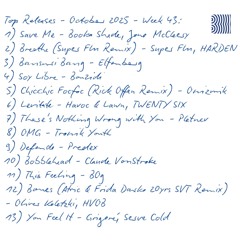 Top Releases - October 2025 - Week 43:
1) Save Me - Booka Shade, Jono McCleery
2) Breathe (Super Flu Remix) - Super Flu, HARDEN
3) Banswi Bang - Elfenberg
4) Soy Libre - Benzoid
5) Chicchic Focfoc (Rick Offen Remix) -
6) Levitate - Havoc & Lawn, TWENTY SIX
7) There's Nothing Wrong with You - Platner
8) OMG - Township Youth
9) Defendo - Prodex
10) Bobblehead - Claude VonStroke
11) This Feeling - BOg
12) Bones (Atric & Frida Darko 20yrs SVT Remix)
- Oliver Koletzki, HVOB
13) You Feel It - Grigoré, Sesve Cold